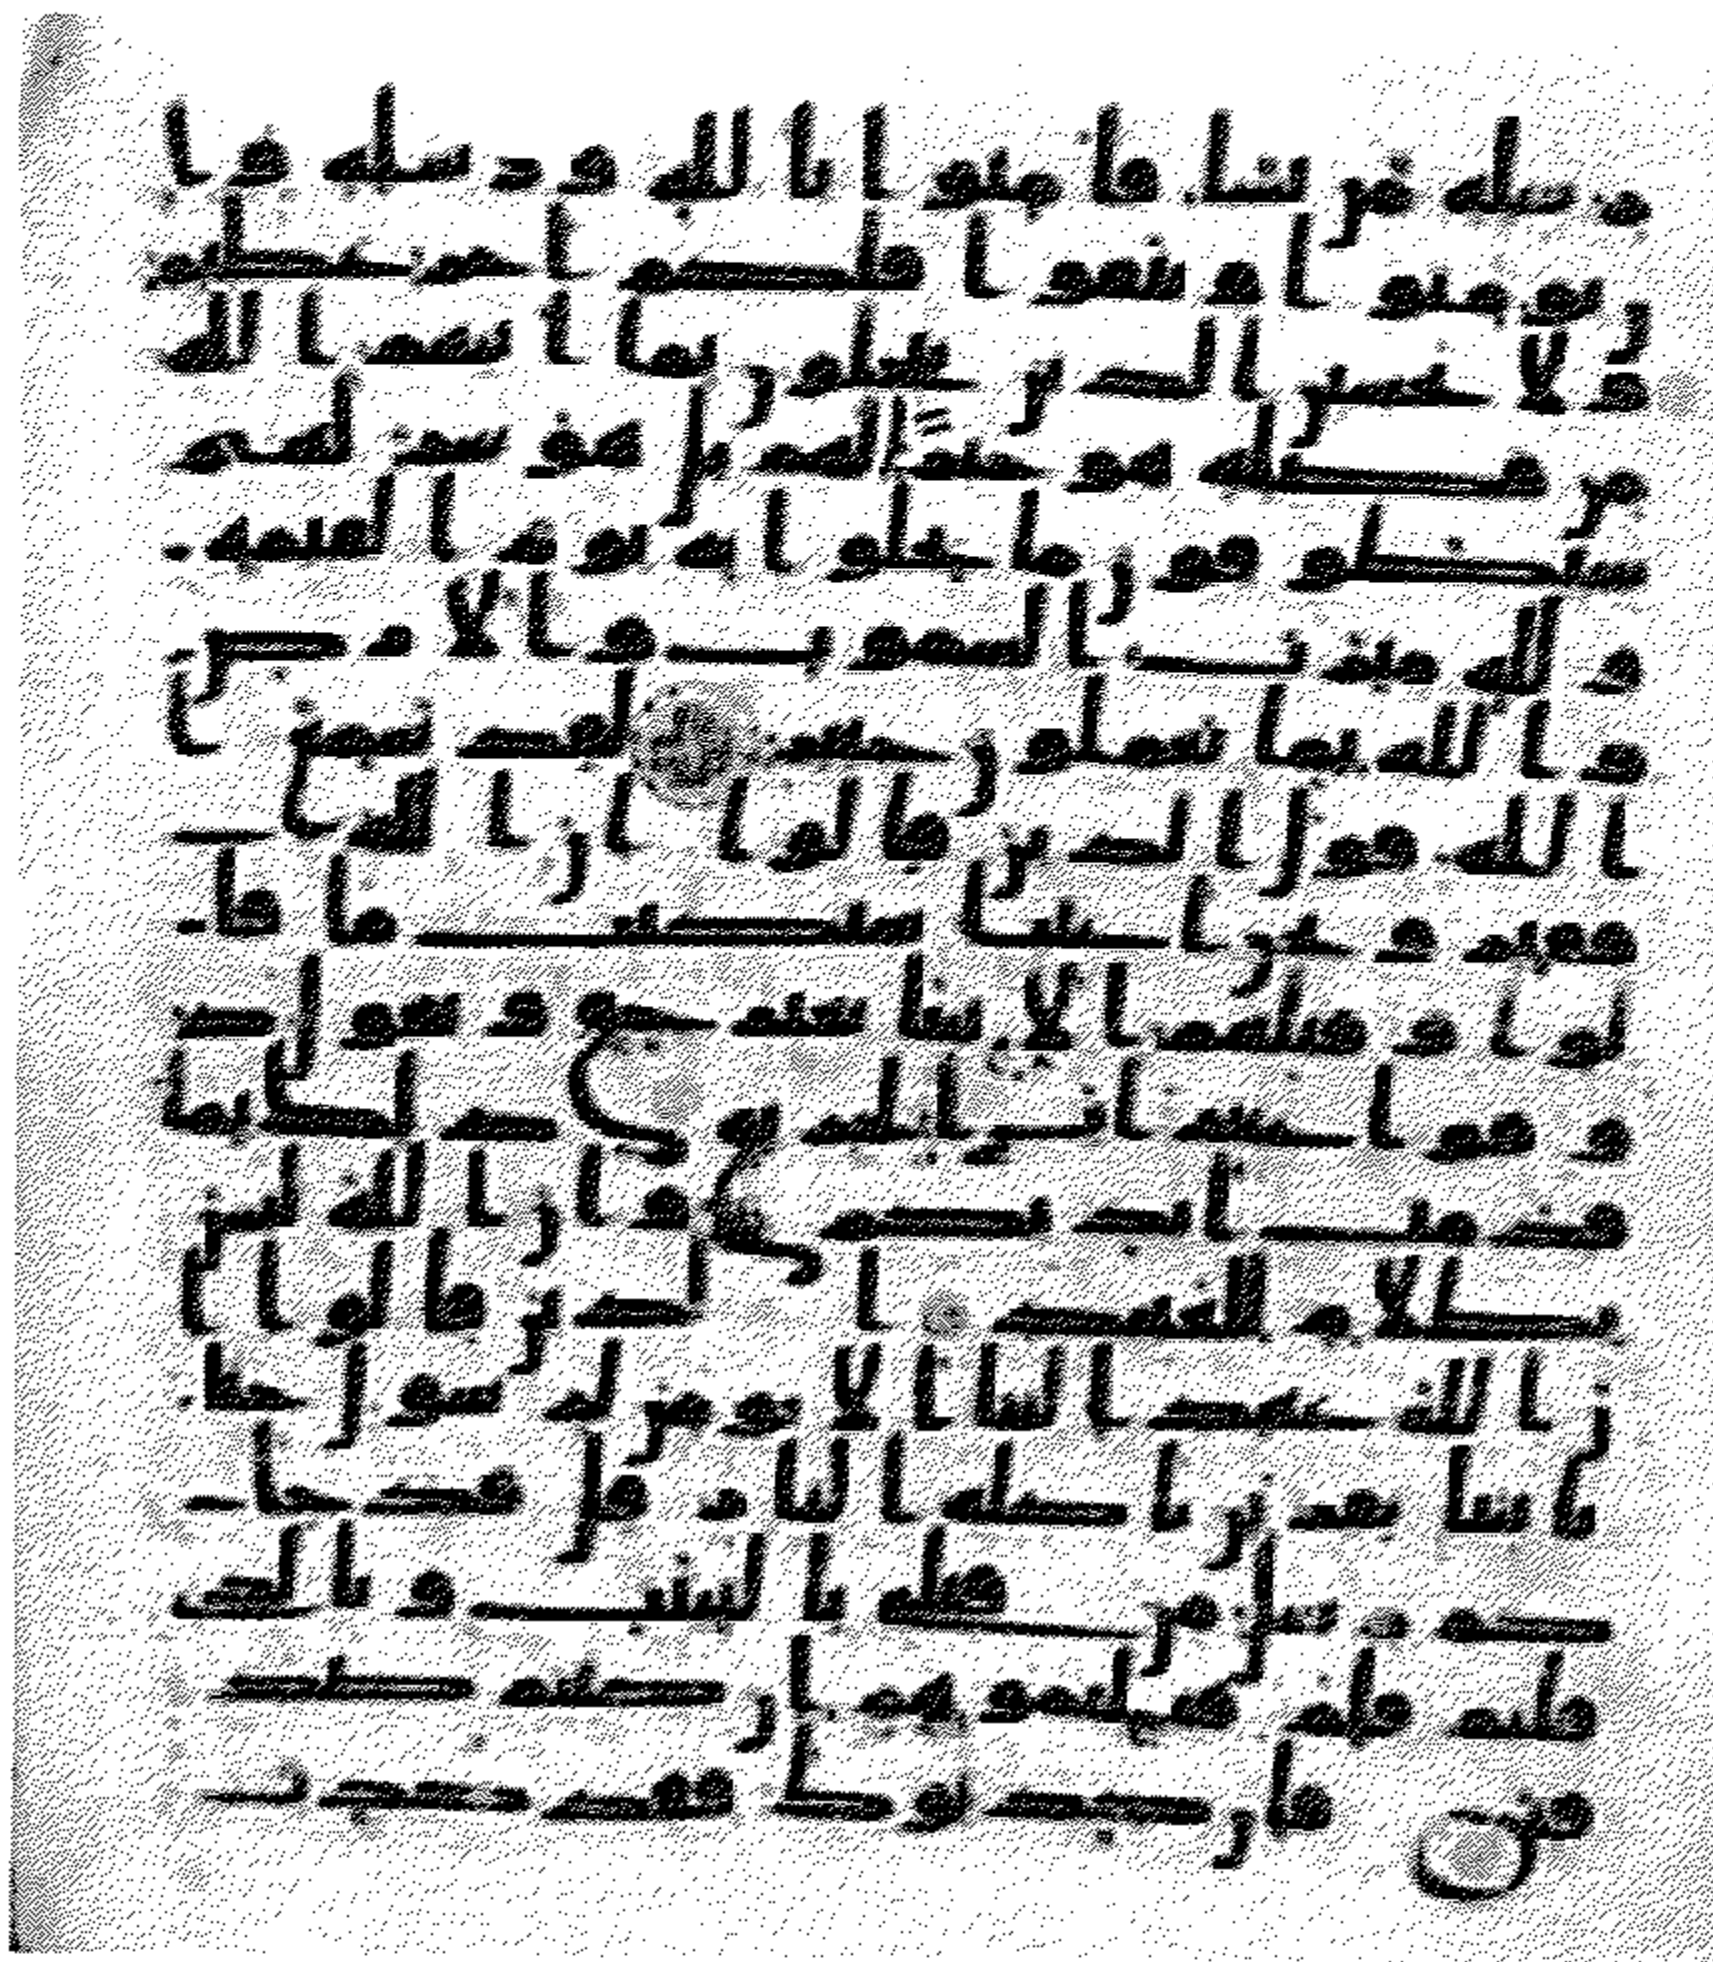 رسله من يشا فامنوا بالله ورسله وا
ن تومنوا وتتقوا فلكم اجر عظيم
ولا يحسبن الذين يبخلون بما اتيهم الله
من فضله هو خيرا لهم بل هو شر لهم
سيطوقون ما بخلوا به يوم القيمه
ولله ميرث السموت والارض
والله بما تعملون خبير لقد سمع ا
لله قول الذين قالوا ان الله
فقير ونحن اغنيا سنكتب ما قا
لوا وقتلهم الانبيا بغير حق ونقول ذ
وقوا عذاب الحريق ذلك بما
قدمت ايديكم وان الله ليس
بظلام للعبيد الذين قالوا ا
ن الله عهد الينا الا نومن لرسول حتا
ياتينا بقربان تاكله النار قل قد جا
كم رسل من قبلي بالبينت وبالذي
قلتم فلم قتلتموهم ان كنتم صد
قين فان كذبوك فقد كذب